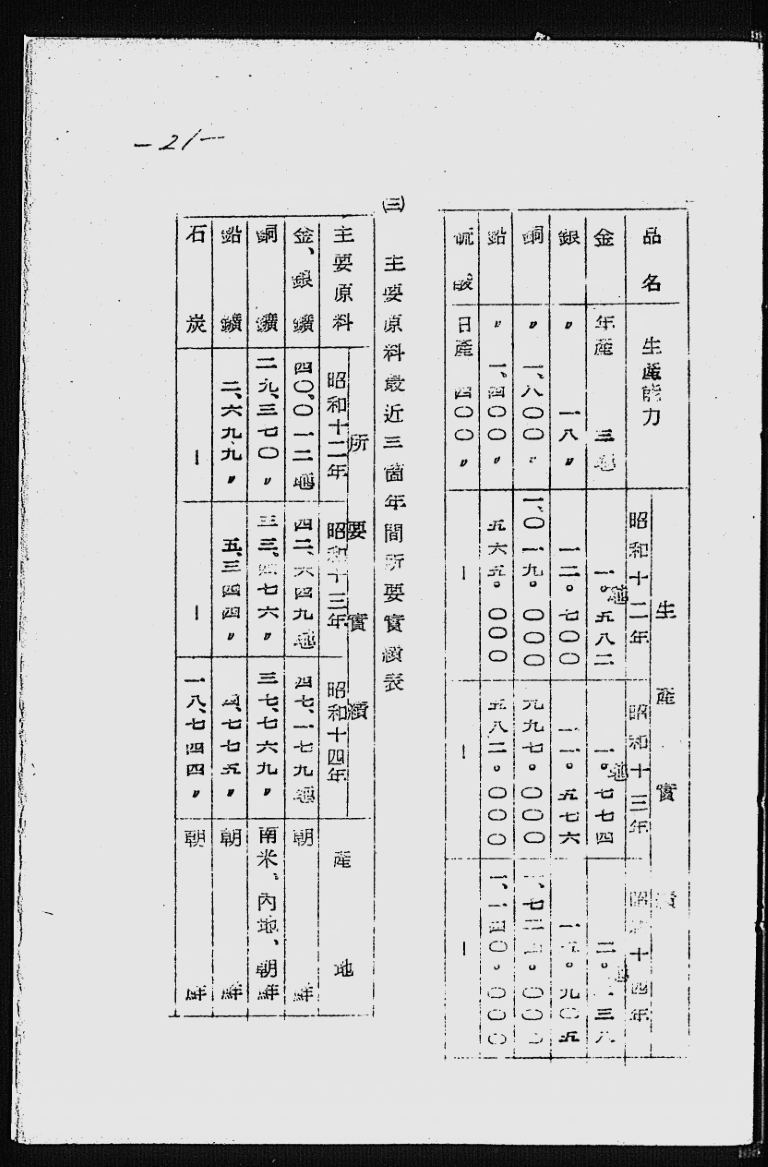 —21—
品名 生産能力 生産實績 昭和十二年 昭和十三年 昭和十四年
金 年産 三瓲 一。五八二瓲 一。七七四瓲
銀 〃 一八〃 一二。七〇〇 一一。五七六 一五。九〇五
銅 〃 一、八〇〇〃 一、〇一九。〇〇〇 九九七。〇〇〇
鉛 〃 一、四〇〇〃 五六五。〇〇〇 五八二。〇〇〇 一、一四〇。〇〇〇
硫酸 日産 四〇〇〃 ー ー ー
㈢ 主要原料最近三箇年間所要實績表
主要原料 所要實績 昭和十二年 昭和十三年 昭和十四年 産地
金、銀鑛 四〇、〇一二瓲 四二、六四九瓲 四七、一七九瓲 朝鮮
銅鑛 二九、三七〇〃 三三、四七六〃 三七、七六九〃 南米、內地、朝鮮
鉛鑛 二、六九九〃 五、三四四〃 四、七七五〃 朝鮮
石炭 ー ー 一八、七四四〃 朝鮮